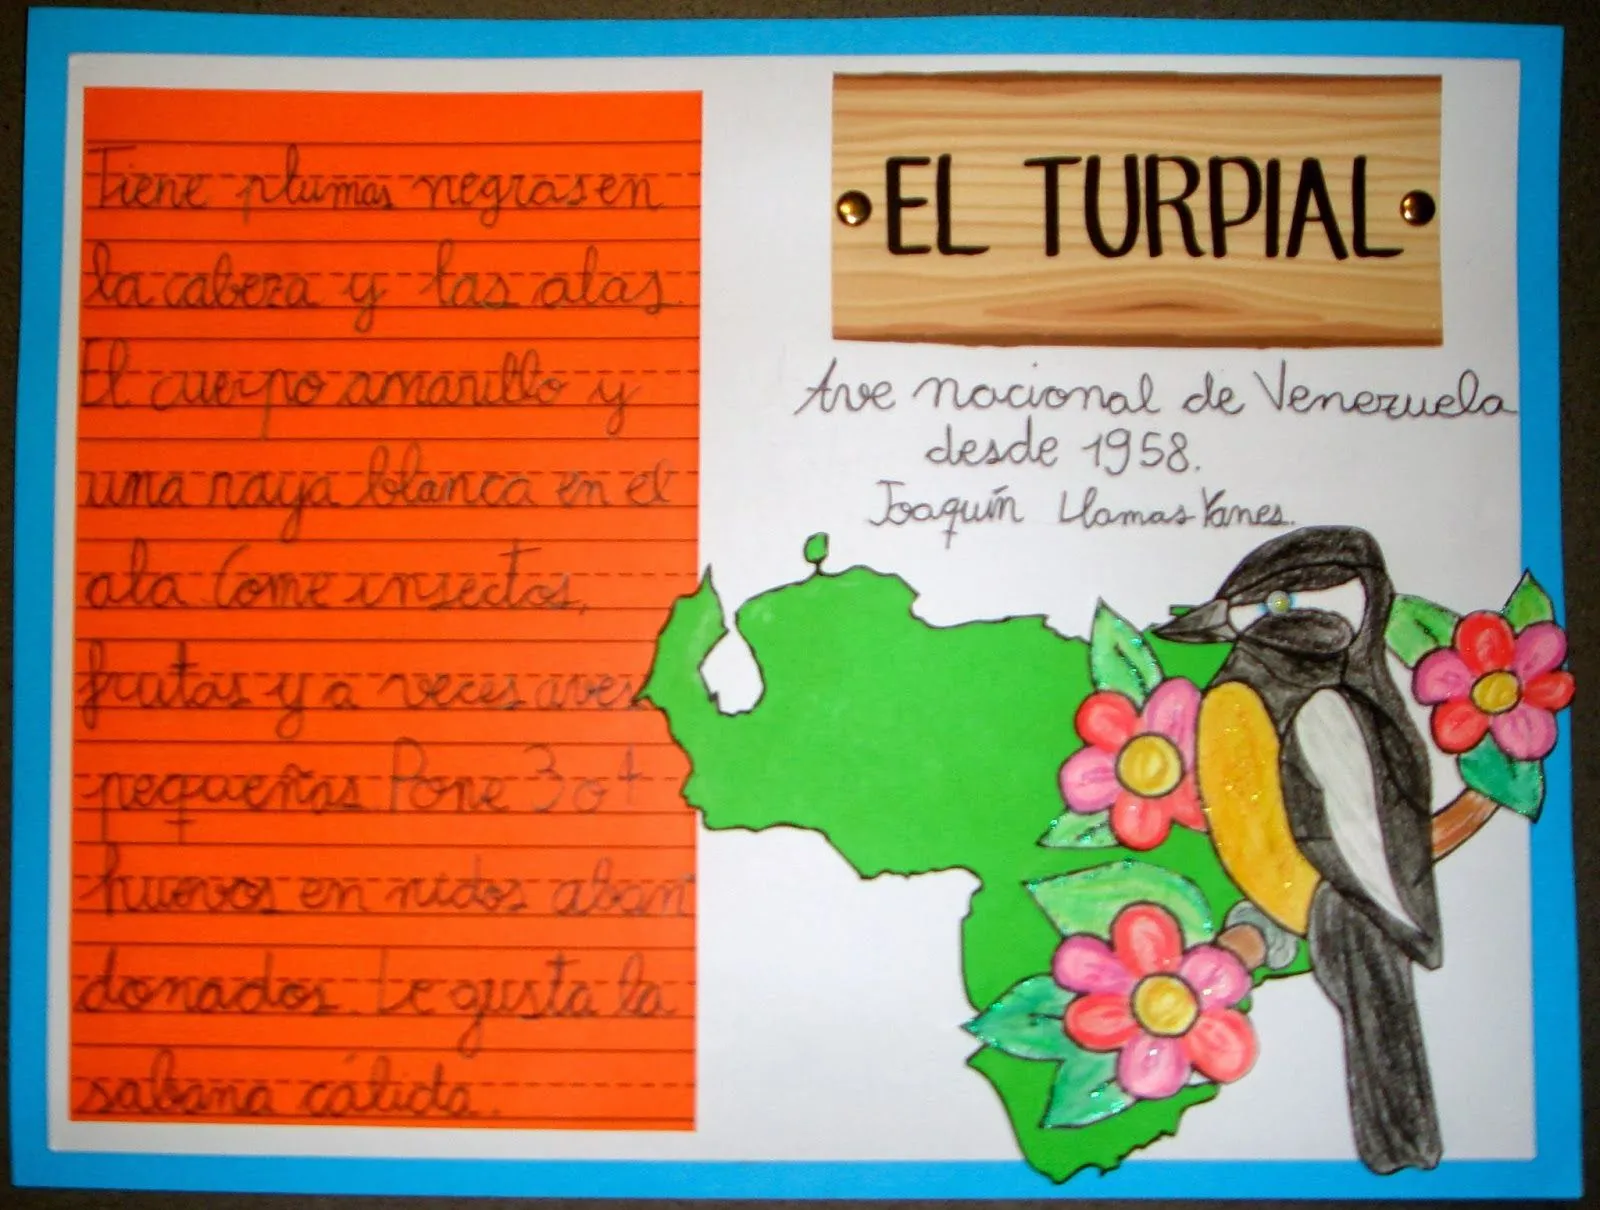 Tiene plumas negras en
la cabeza y las alas.
El cuerpo amarillo y
una raya blanca en el
ala. Come insectos,
frutas y a veces aves
pequeñas. Pone 3 o 4
huevos en nidos aban
donados. Le gusta la
sabana cálida.
EL TURPIAL
Ave nacional de Venezuela
desde 1958.
Joaquín Llamas Yanes.